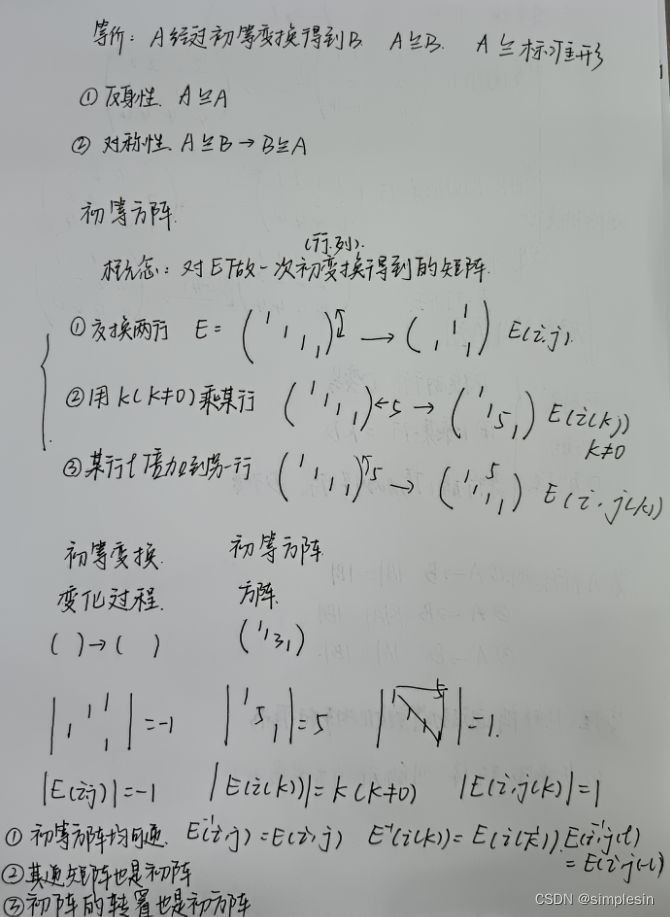 等价: A经过初等变换得到B. A≌B. A≌标准形
① 反身性. A≌A
② 对称性. A≌B→B≌A
初等方阵.
(行.列).
概念: 对E只做一次初变换得到的矩阵.
① 交换两行 E= (1 1 1 1) → (1 1 1 1) E(i,j).
② 用k(k≠0)乘某行 (1 1 1 1) ←5 → (1 1 5 1) E(i(k))
k≠0
③ 某行l倍加到另一行 (1 1 1 1) 5 → (1 1 5 1 1) E(i,j(k))
初等变换. 初等方阵.
变化过程. 方阵.
( )→( ) (1 1 3 1)
|1 1 1 1|=-1 |1 5 1|=5 |1 5 1 1|=1.
|E(i,j)|=-1 |E(i(k))|=k(k≠0) |E(i,j(k)|=1
① 初等方阵均可逆. E⁻¹(i,j)=E(i,j) E⁻¹(i(k))=E(i(1/k)). E⁻¹(i,j(l)
=E(i,j(-l)
② 其逆矩阵也是初阵
③ 初阵的转置也是初方阵
CSDN @simplesin